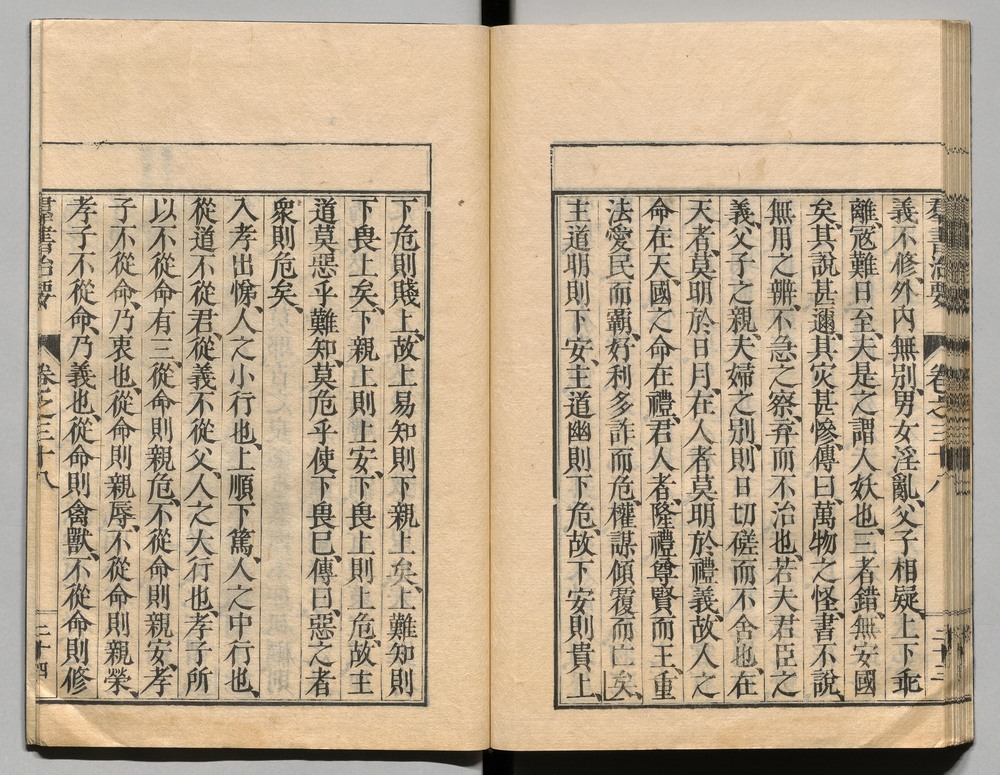 群書治要 卷之三十八 二十三
義不修、外内無別、男女淫亂、父子相疑、上下乖
離、寇難日至、夫是之謂人妖也、三者錯、無安國
矣、其說甚邇、其灾甚慘、傳曰、萬物之怪、書不說、
無用之辨、不急之察、弃而不治也、若夫君臣之
義、父子之親、夫婦之別、則日切磋而不舍也、在
天者、莫明於日月、在人者莫明於禮義、故人之
命在天、國之命在禮、君人者、隆禮尊賢而王、重
法愛民而霸、好利多詐而危、權謀傾覆而亡矣、
主道明則下安、主道幽則下危、故下安則貴上、
下危則賤上、故上易知則下親上矣、上難知則
下畏上矣、下親上則上安、下畏上則上危、故主
道莫惡乎難知、莫危乎使下畏已、傳曰、惡之者
衆則危矣、
入孝出悌、人之小行也、上順下篤、人之中行也、
從道不從君、從義不從父、人之大行也、孝子所
以不從命有三、從命則親危、不從命則親安、孝
子不從命、乃衷也、從命則親辱、不從命則親榮、
孝子不從命、乃義也、從命則禽獸、不從命則修
群書治要 卷之三十八 二十四